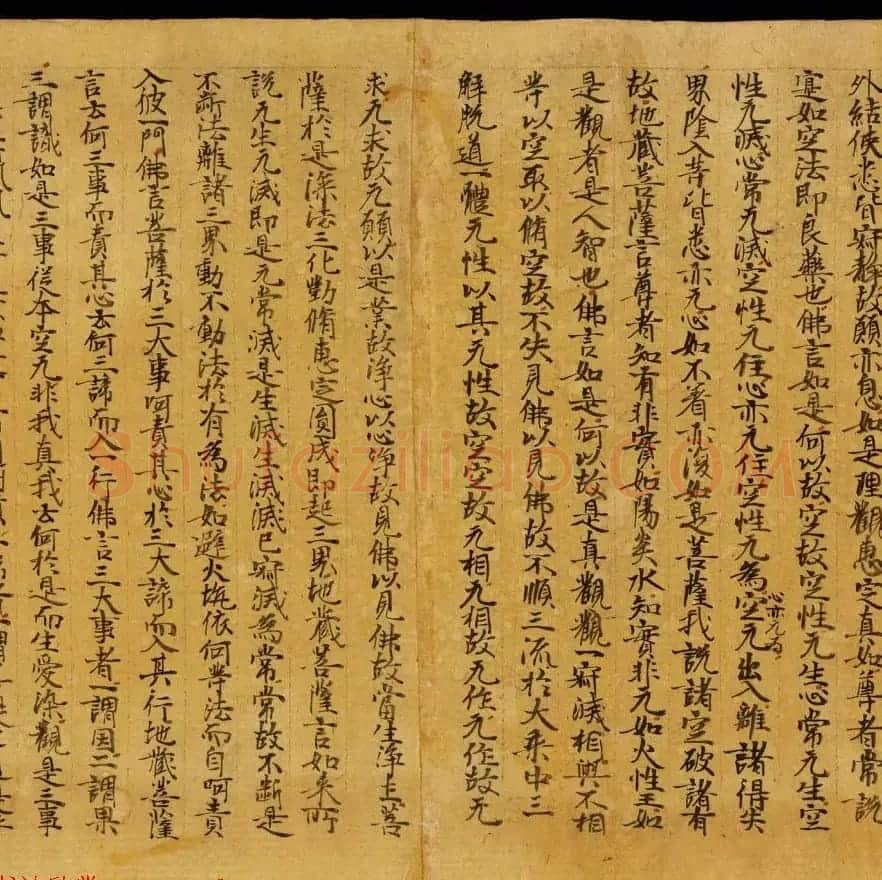 外結使悉皆寂静故願亦息如是理觀惠定真如尊者常說
寔如空法即良藥也佛言如是何以故空故空性无生心常无生空
性无滅心常无滅空性无住心亦无住空性无為心亦无為空无出入離諸得失
界陰入等皆悉亦无心如不著亦復如是菩薩我說諸空破諸有
故地藏菩薩言尊者知有非實如陽炎水知實非无如火性王如
是觀者是人智也佛言如是何以故是真觀觀一寂滅相與不相
等以空取以脩空故不失見佛以見佛故不順三流於大乘中三
解脫道一體无性以其无性故空空故无相无相故无作无作故无
求无求故无願以是業故淨心以心淨故見佛以見佛故當生淨土菩
薩於是深法三化勤脩惠定圓成即超三界地藏菩薩言如來所
說无生无滅即是无常滅是生滅生滅滅已寂滅為常常故不斷是
不斷法離諸三界動不動法於有為法如避火坑依何等法而自呵責
入彼一門佛言菩薩於三大事呵責其心於三大諦而入其行地藏菩薩
言云何三事而責其心云何三諦而入一行佛言三大事者一謂因二謂果
三謂識如是三事從本空无非我真我云何於是而生愛染觀是三事
Shufaziliao.COM